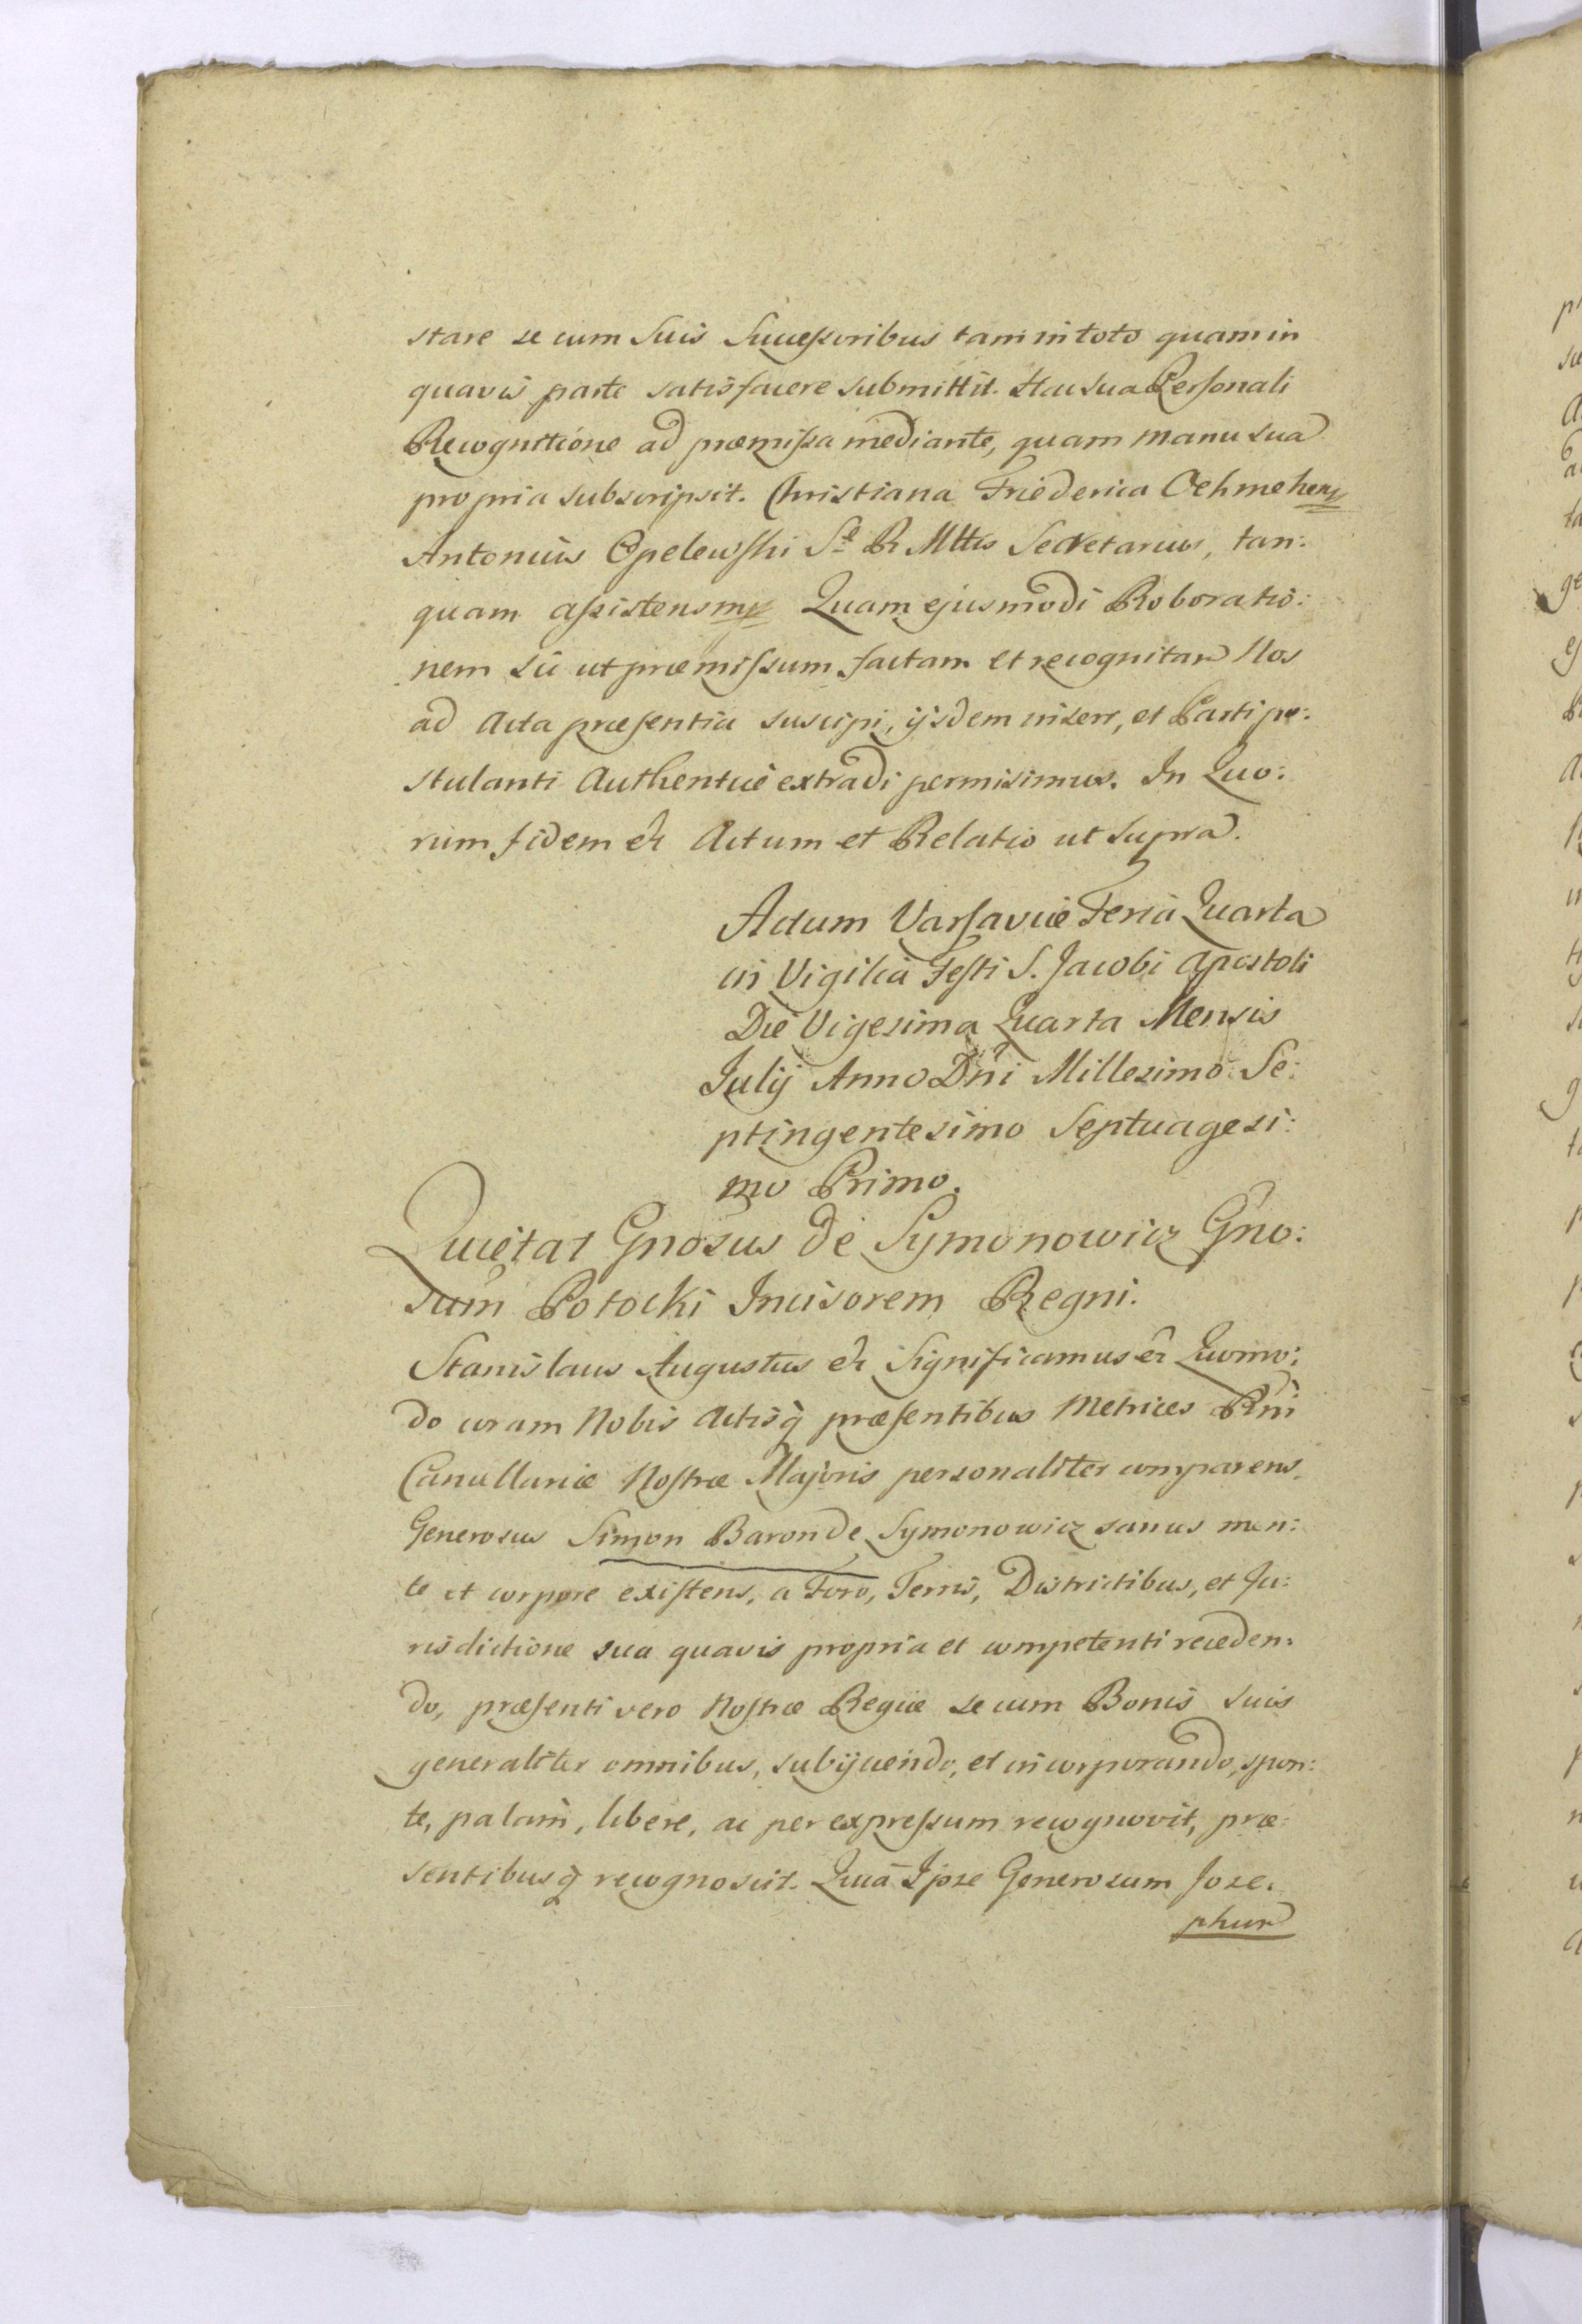 stare se cum Suis Successoribus tam in toto quam in
quavis parte satisfacere submittit. Hac sua Personali
Recognitione ad præmissa mediante, quam manu sua
propria subscripsit. Christiana Friederica Oehmchen
Antonius Opelewski S R Mttis Secretarius, tan:
quam assistens mp Quam ejusmodi Roboratio:
nem sic ut præmissum factam et recognitam Nos
ad Acta præsentia suscipi, ijsdem inseri, et Parti po:
stulanti Authentice extradi permisimus. In Quo:
rum fidem etc Actum et Relatio ut supra.
Actum Varsaviæ Feria Quarta
in Vigilia Festi S. Jacobi Apostoli
Die Vigesima Quarta Mensis
Julij Anno Dñi Millesimo Se:
ptingentesimo Septuagesi:
mo Primo.
Quietat Gnosus de Symonowicz Gno:
sum Potocki Incisorem Regni.
Stanislaus Augustus etc Significamus etc Quomo:
do coram Nobis Actisq præsentibus Metrices Rni
Cancellariæ Nostræ Majoris personaliter comparens
Generosus Simon Baron de Symonowicz sanus men:
te et corpore existens, a Foro, Terris, Districtibus, et Ju:
risdictione sua quavis propria et competenti receden:
do, præsenti vero Nostræ Regiæ se cum Bonis suis
generaliter omnibus, subijciendo, et incorporando, spon:
te, palam, libere, ac per expressum recognovit, præ:
sentibusq recognoscit. Quia Ipse Generosum Jose:
phum